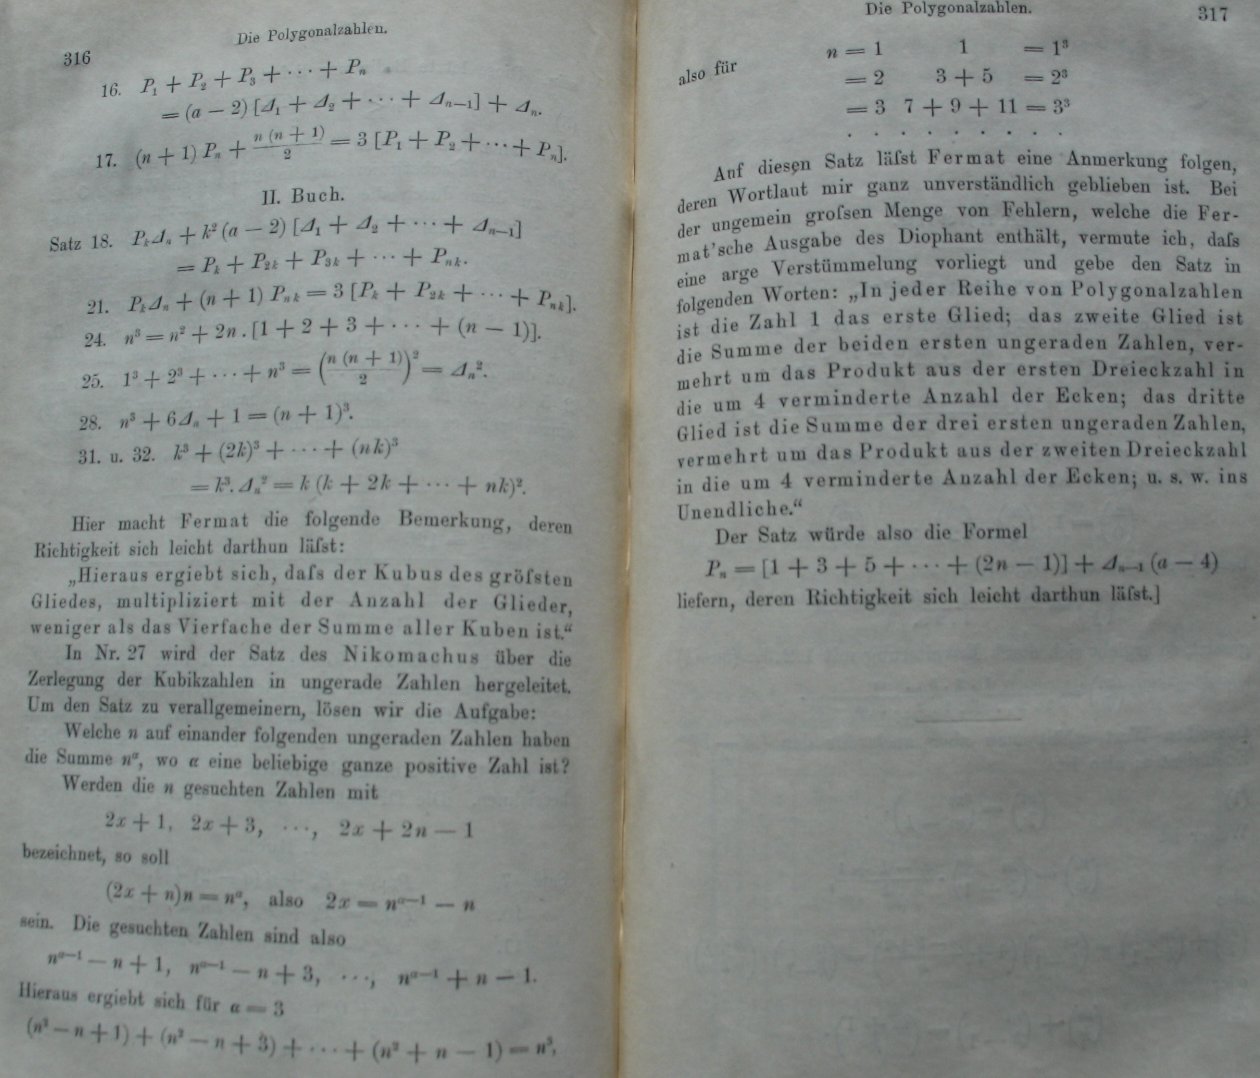 316
Die Polygonalzahlen.
16. P₁ + P₂ + P₃ + ··· + Pₙ
= (a − 2) [Δ₁ + Δ₂ + ··· + Δₙ₋₁] + Δₙ.
17. (n + 1) Pₙ + n (n + 1)/2 = 3 [P₁ + P₂ + ··· + Pₙ].
II. Buch.
Satz 18. PₖΔₙ + k² (a − 2) [Δ₁ + Δ₂ + ··· + Δₙ₋₁]
= Pₖ + P₂ₖ + P₃ₖ + ··· + Pₙₖ.
21. PₖΔₙ + (n + 1) Pₙₖ = 3 [Pₖ + P₂ₖ + ··· + Pₙₖ].
24. n³ = n² + 2n . [1 + 2 + 3 + ··· + (n − 1)].
25. 1³ + 2³ + ··· + n³ = (n (n + 1)/2)² = Δₙ².
28. n³ + 6Δₙ + 1 = (n + 1)³.
31. u. 32. k³ + (2k)³ + ··· + (nk)³
= k³. Δₙ² = k (k + 2k + ··· + nk)².
Hier macht Fermat die folgende Bemerkung, deren
Richtigkeit sich leicht darthun läſst:
„Hieraus ergiebt sich, daſs der Kubus des gröſsten
Gliedes, multipliziert mit der Anzahl der Glieder,
weniger als das Vierfache der Summe aller Kuben ist.“
In Nr. 27 wird der Satz des Nikomachus über die
Zerlegung der Kubikzahlen in ungerade Zahlen hergeleitet.
Um den Satz zu verallgemeinern, lösen wir die Aufgabe:
Welche n auf einander folgenden ungeraden Zahlen haben
die Summe nᵅ, wo α eine beliebige ganze positive Zahl ist?
Werden die n gesuchten Zahlen mit
2x + 1, 2x + 3, ···, 2x + 2n − 1
bezeichnet, so soll
(2x + n)n = nᵅ, also 2x = nᵅ⁻¹ − n
sein. Die gesuchten Zahlen sind also
nᵅ⁻¹ − n + 1, nᵅ⁻¹ − n + 3, ···, nᵅ⁻¹ + n − 1.
Hieraus ergiebt sich für α = 3
(n² − n + 1) + (n² − n + 3) + ··· + (n² + n − 1) = n³,
Die Polygonalzahlen.
317
also für n = 1 1 = 1³
= 2 3 + 5 = 2³
= 3 7 + 9 + 11 = 3³
. . . . . . . . . .
Auf diesen Satz läſst Fermat eine Anmerkung folgen,
deren Wortlaut mir ganz unverständlich geblieben ist. Bei
der ungemein groſsen Menge von Fehlern, welche die Fer-
mat'sche Ausgabe des Diophant enthält, vermute ich, daſs
eine arge Verstümmelung vorliegt und gebe den Satz in
folgenden Worten: „In jeder Reihe von Polygonalzahlen
ist die Zahl 1 das erste Glied; das zweite Glied ist
die Summe der beiden ersten ungeraden Zahlen, ver-
mehrt um das Produkt aus der ersten Dreieckzahl in
die um 4 verminderte Anzahl der Ecken; das dritte
Glied ist die Summe der drei ersten ungeraden Zahlen,
vermehrt um das Produkt aus der zweiten Dreieckzahl
in die um 4 verminderte Anzahl der Ecken; u. s. w. ins
Unendliche.“
Der Satz würde also die Formel
Pₙ = [1 + 3 + 5 + ··· + (2n − 1)] + Δₙ₋₁ (a − 4)
liefern, deren Richtigkeit sich leicht darthun läſst.]